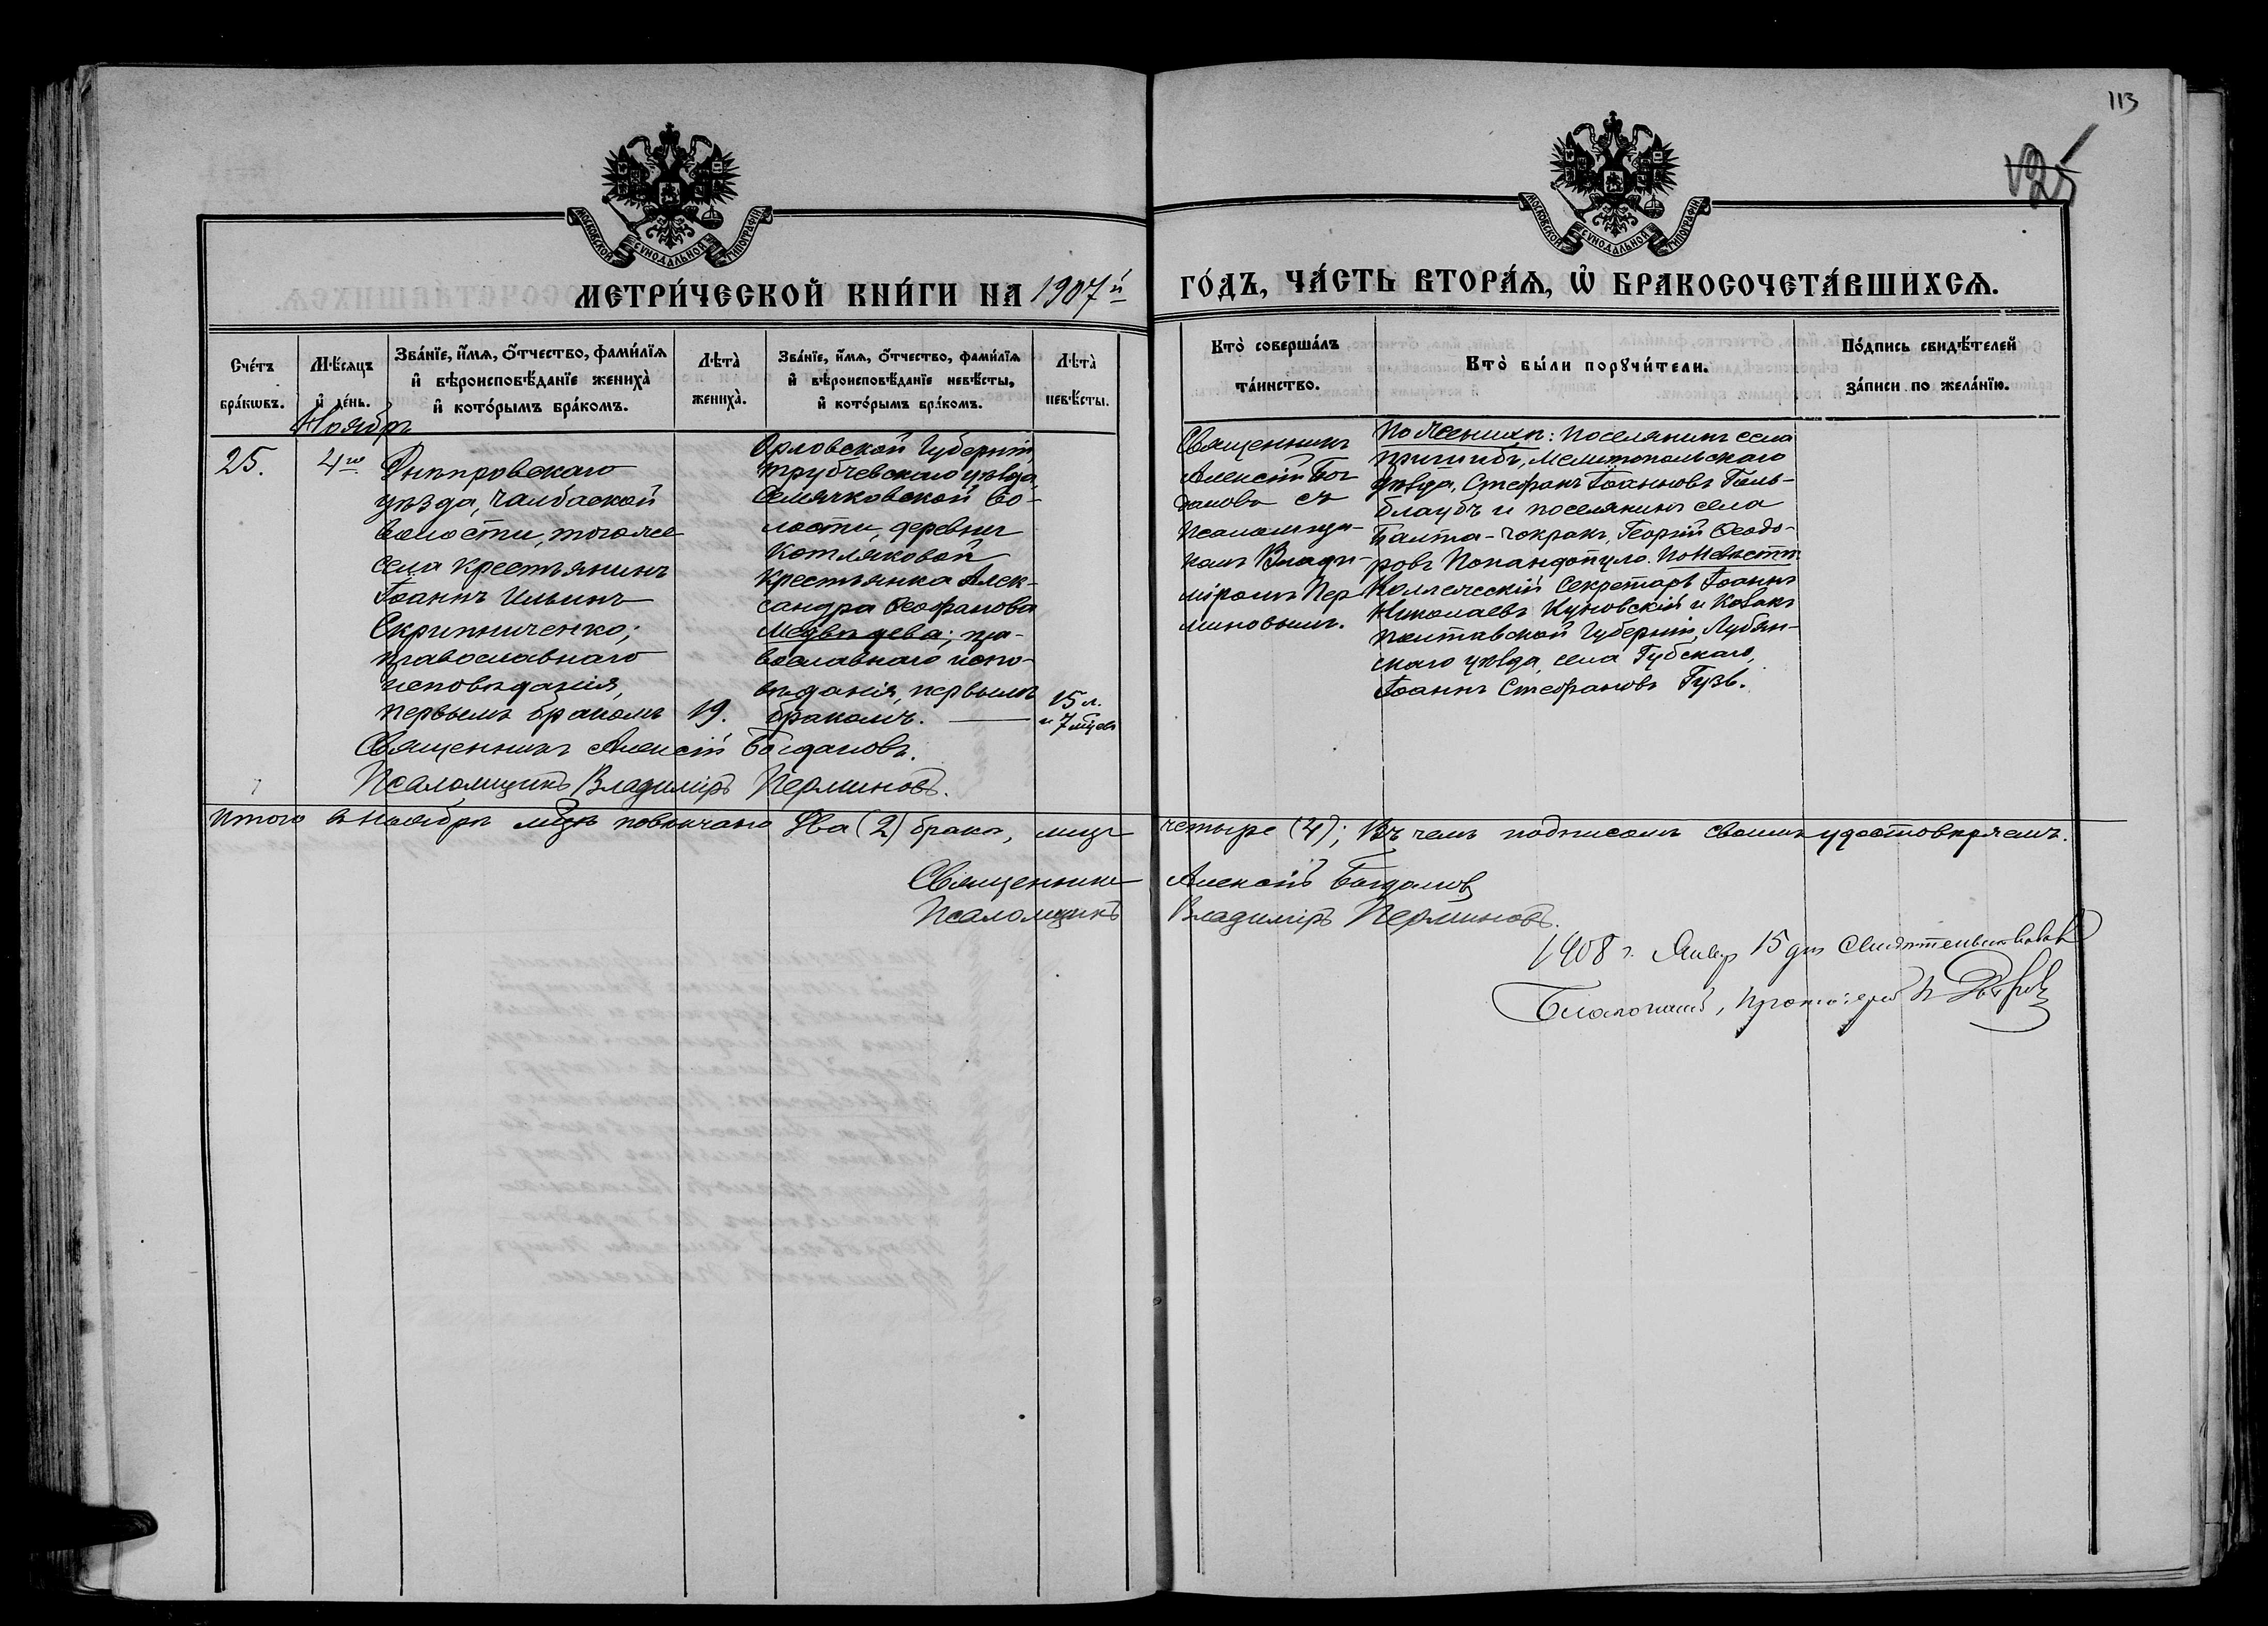 113
125
МОСКОВСКОЙ СѴНОДАЛЬНОЙ ТИПОГРАФІИ
МОСКОВСКОЙ СѴНОДАЛЬНОЙ ТИПОГРАФІИ
МЕТРИ́ЧЕСКОЙ КНИ́ГИ НА 1907й
ГО́ДЪ, ЧА́СТЬ ВТОРА́Ѧ, Ѡ҆ БРАКОСОЧЕТА́ВШИХСѦ.
Сче́тъ
бра́кѡвъ.
Мѣ́сяцъ
и҆ де́нь.
Зва́нїе, и҆́мѧ, ѻ҆́тчество, фами́лїѧ
и҆ вѣроисповѣ́данїе жениха̀
и҆ кото́рымъ бра́комъ.
Лѣта̀
жениха̀.
Зва́нїе, и҆́мѧ, ѻ҆́тчество, фами́лїѧ
и҆ вѣроисповѣ́данїе невѣ́сты,
и҆ кото́рымъ бра́комъ.
Лѣта̀
невѣ́сты.
Кто̀ соверша́лъ
та́инство.
Кто̀ бы́ли порꙋчи́тели.
По́дпись свидѣ́телей
за́писи по жела́нїю.
Ноябрь
25.
4го
Днѣпровскаго
уѣзда, Чалбаской
волости, того же
села крестьянинъ
Іоаннъ Ильинъ
Скрипниченко;
православнаго
исповѣданія,
первымъ бракомъ
19.
Орловской Губерніи,
Трубчевскаго уѣзда,
Семячковской во-
лости, деревни
Котляковой
крестьянка Алек-
сандра Ѳеофанова
Медвѣдева; пра-
вославнаго испо-
вѣданія, первымъ
бракомъ.
15 л.
и 7 мѣсцевъ
Священникъ
Алексій Бог
дановъ съ
Псаломщи-
комъ Влади-
міромъ Пер
миновымъ.
По Женихѣ: поселянинъ села
Пришибъ, Мелитопольскаго
уѣзда, Стефанъ Іоанновъ Галь-
блаубъ и поселянинъ села
Балта-Чокракъ, Георгій Ѳеодо-
ровъ Попандопуло. По Невѣстѣ
Коллежскій Секретарь Іоаннъ
Николаевъ Куновскій и Козакъ
Полтавской Губерніи, Лубен-
скаго уѣзда, села Губскаго,
Іоаннъ Стефановъ Гузь.
Священникъ Алексій Богдановъ.
Псаломщикъ Владиміръ Перминовъ.
Итого въ ноябрѣ мцѣ повѣнчано два (2) брака, лицъ четыре (4); въ чемъ подписомъ своимъ удостовѣряемъ.
Священникъ Алексій Богдановъ
Псаломщикъ Владиміръ Перминовъ.
1908 г. Январ 15 дня свидѣтельствовалъ
Благочинный, Протоіерей